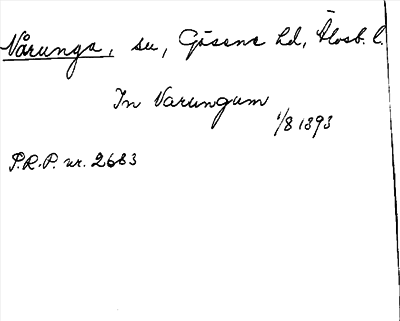 Vårunga, su, Gäsene hd, Älvsb. l.
In Varungum
1/8 1393
P.R.P. nr. 2683